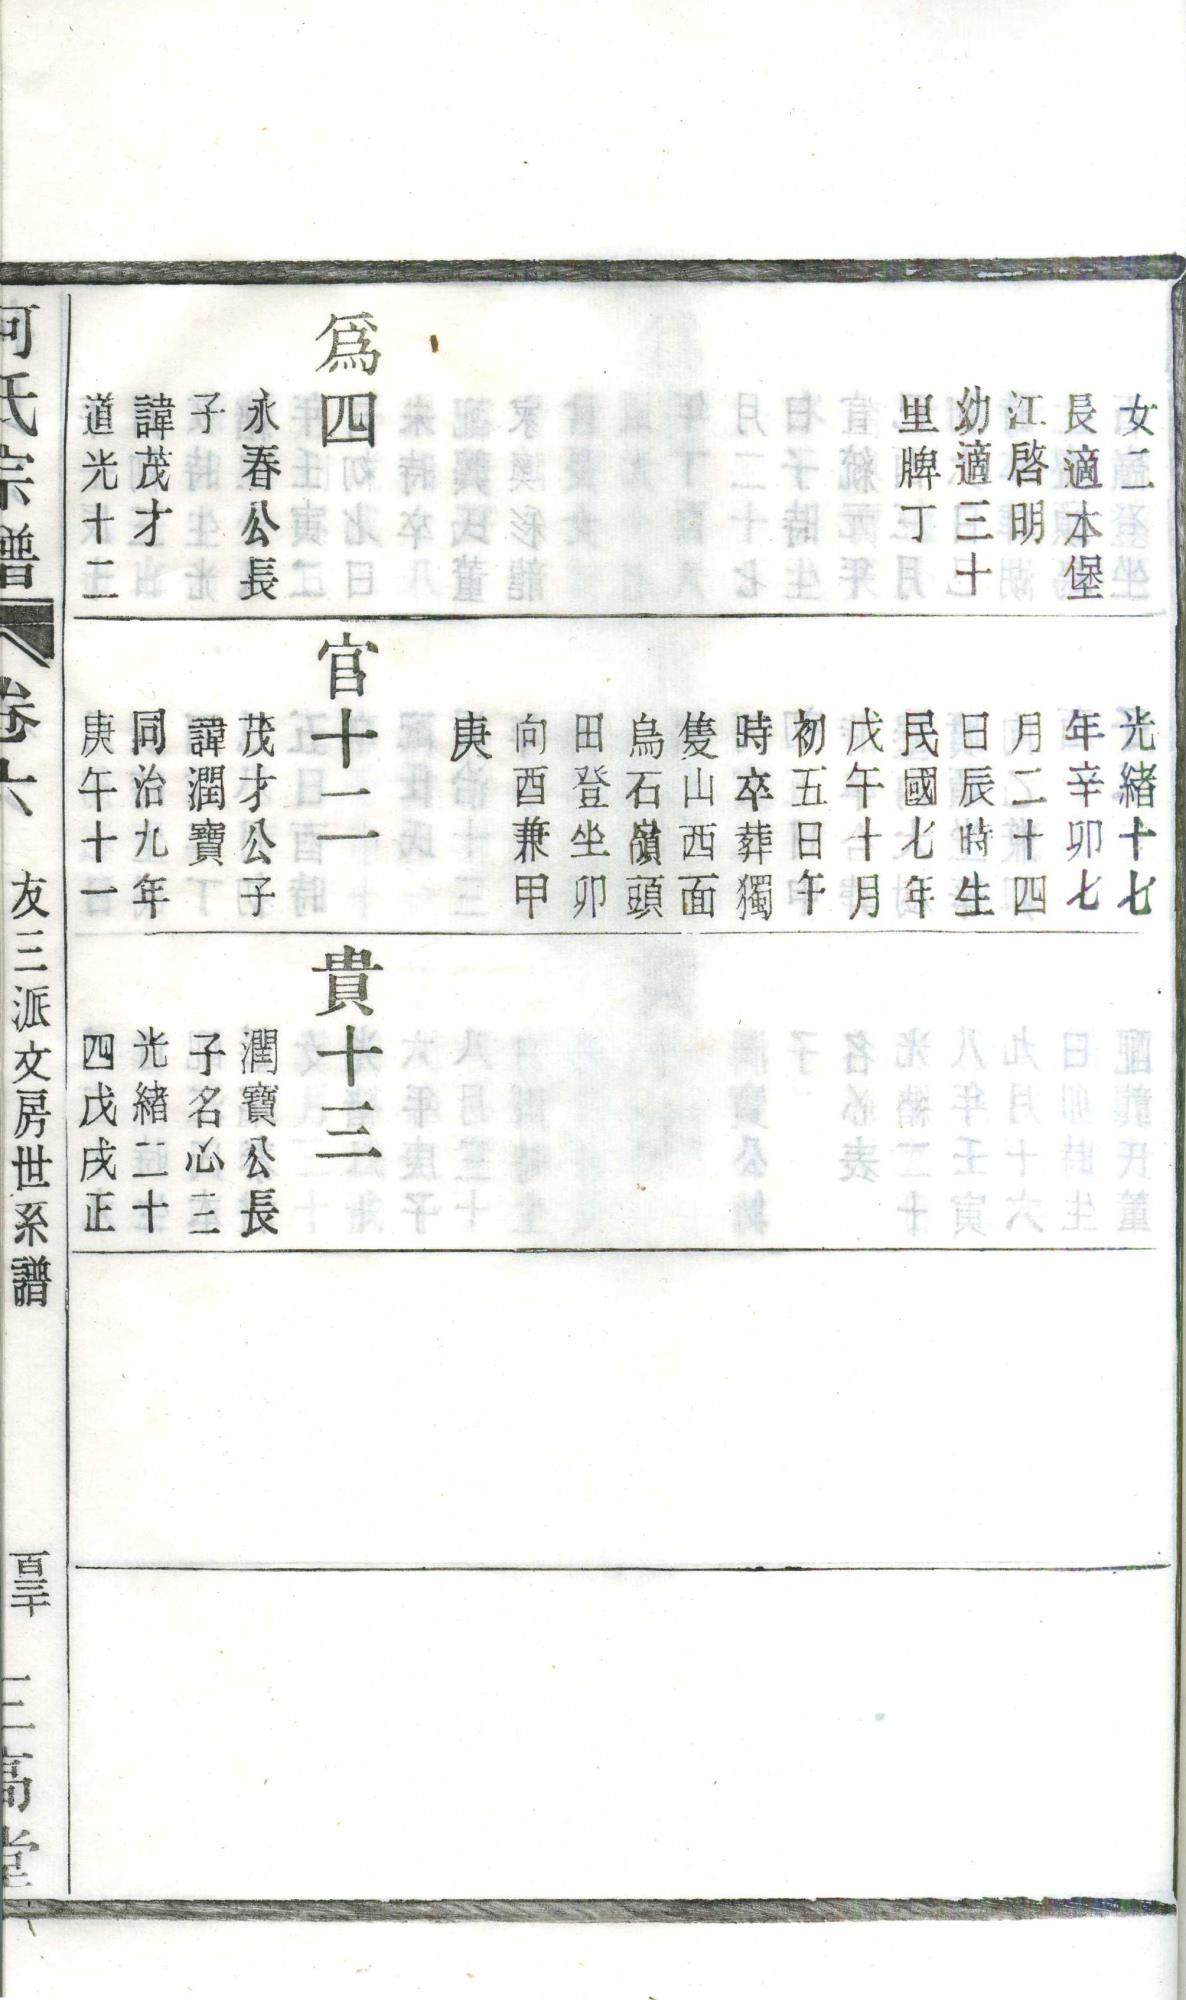 女二
長適本堡
江啓明
幼適三十
里牌丁
爲四
永春公長
子
諱茂才
道光十二
光緒十七
年辛卯七
月二十四
日辰時生
民國七年
戊午十月
初五日午
時卒葬獨
隻山西面
烏石嶺頭
田登坐卯
向酉兼甲
庚
官十二
茂才公子
諱潤寶
同治九年
庚午十一
貴十三
潤寶公長
子名心三
光緒二十
四戊戌正
何氏宗譜
卷六
友三派文房世系譜
三高堂